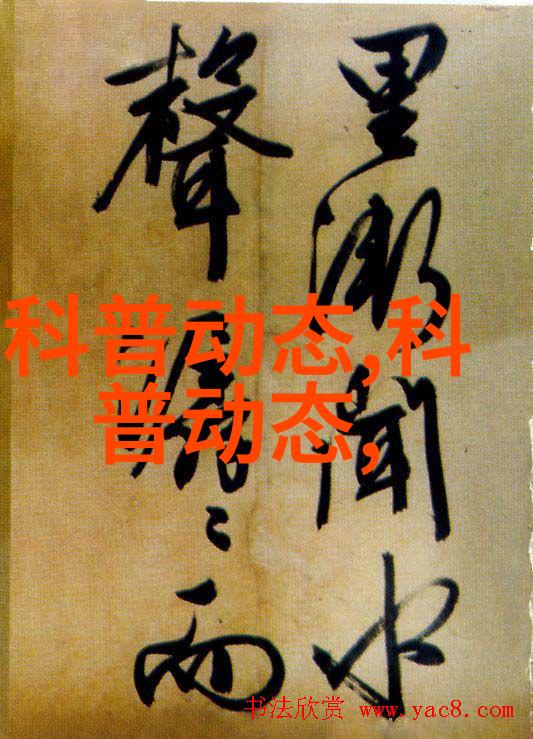 里漸聞水
聲潺々而
科普动态,科
普动态,
书法欣赏 www.yac8.com